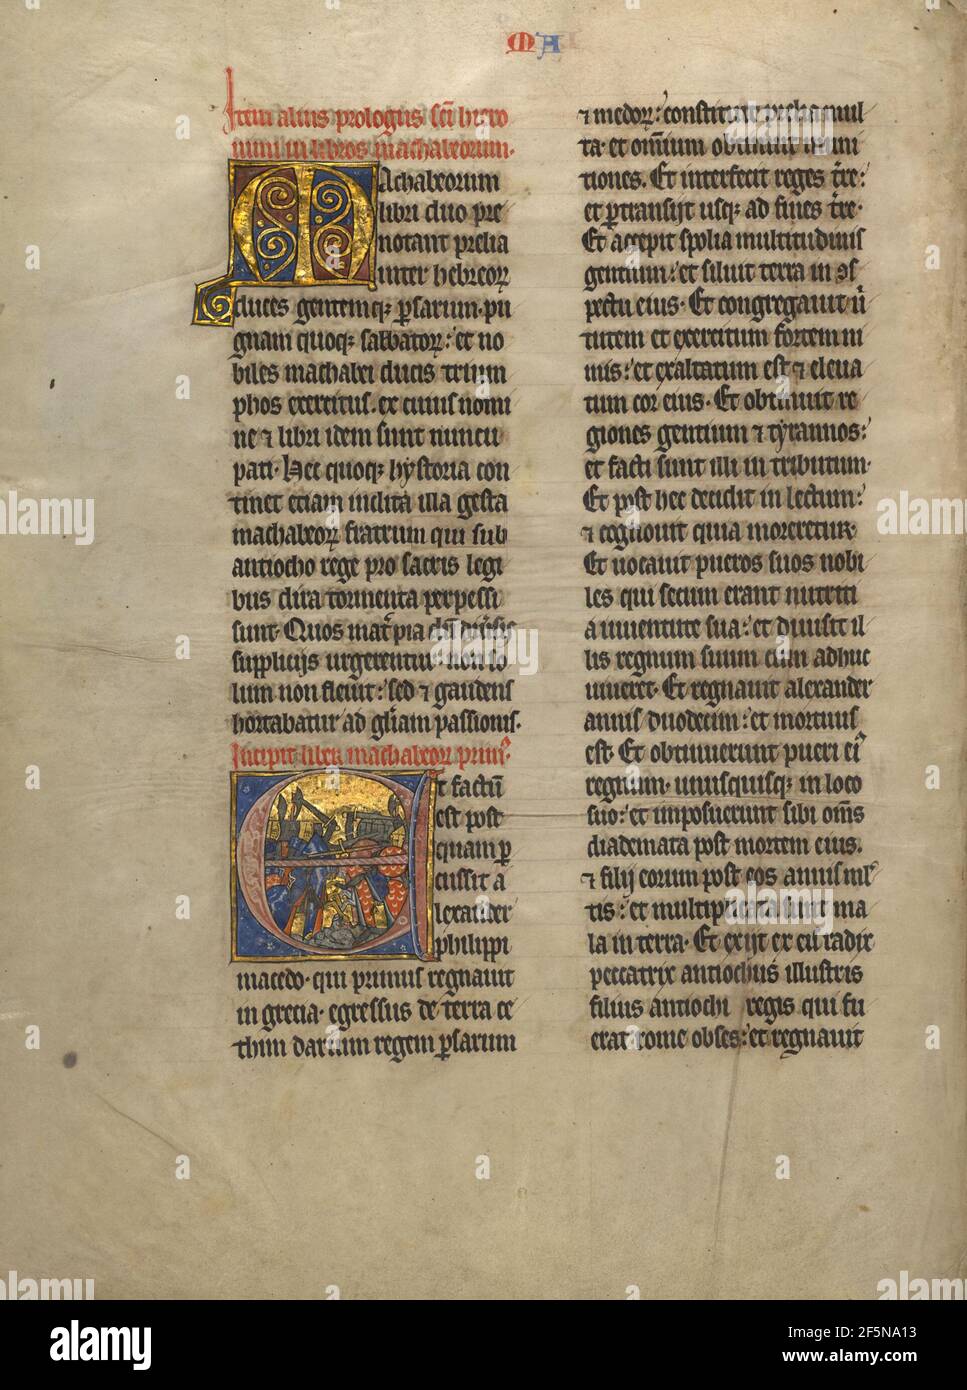 MA
Item alius prologus sci iero
nimi in libros machabeorum.
Machabeorum
libri duo pre
notant prelia
inter hebreoꝝ
duces gentemqꝫ ꝑsarum. pu
gnam quoqꝫ sabbatoꝝ: et no
biles machabei ducis trium
phos exercitus. ex cuius nomi
ne ⁊ libri idem sunt nuncu
pati. Hec quoqꝫ hystoria con
tinet etiam inclita illa gesta
machabeoꝝ fratrum qui sub
antiocho rege pro sacris legi
bus dira tormenta perpessi
sunt. Quos mat̾ pia dū diu̾sis
supplicijs urgerentur. non so
lum non fleuit: sed ⁊ gaudens
hortabatur ad gl̄iam passionis.
Incipit liber machabeoꝝ primꝰ.
Et factū
est post
quam ꝑ
cussit a
lexander
philippi
macedo. qui primus regnauit
in grecia. egressus de terra ce
thim darium regem ꝑsarum
⁊ medoꝝ: constituit prelia mul
ta. et om̄ium obtinuit muni
tiones. Et interfecit reges t̾re:
et ꝑtransijt usqꝫ ad fines t̾re.
Et accepit spolia multitudinis
gentium: et siluit terra in ꝯs
pectu eius. Et congregauit ũ
tutem et exercitum fortem ni
mis: et exaltatum est ⁊ eleua
tum cor eius. Et obtinuit re
giones gentium ⁊ tyrannos:
et facti sunt illi in tributum.
Et post hec decidit in lectum:
⁊ cognouit quia moreretur.
Et uocauit pueros suos nobi
les qui secum erant nutriti
a iuuentute sua: et diuisit il
lis regnum suum cum adhuc
uiueret. Et regnauit alexander
annis duodecim: et mortuus
est. Et obtinuerunt pueri eiꝰ
regnum. unusquisqꝫ in loco
suo: et imposuerunt sibi om̄s
diademata post mortem eius.
⁊ filij eorum post eos annis ml̾
tis: et multiplicata sunt ma
la in terra. Et exijt ex eis radix
peccatrix antiochus illustris
filius antiochi regis qui fu
erat rome obses: et regnauit
alamy
Image ID: 2F5NA13
www.alamy.com